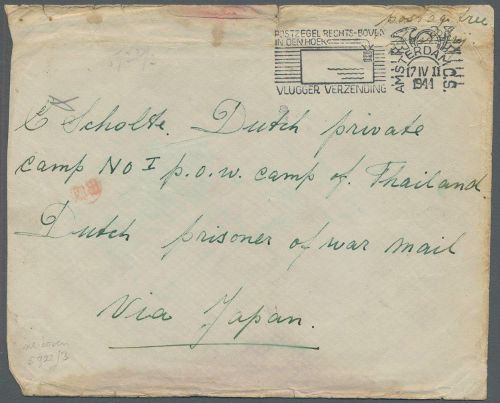 postage free
POSTZEGEL RECHTS-BOVEN
IN DEN HOEK
VLUGGER VERZENDING
AMSTERDAM C.S.
17 IV 11
1944
E Scholte. Dutch private
camp No I p.o.w. camp of Thailand
Dutch prisoner of war mail
Via Japan.